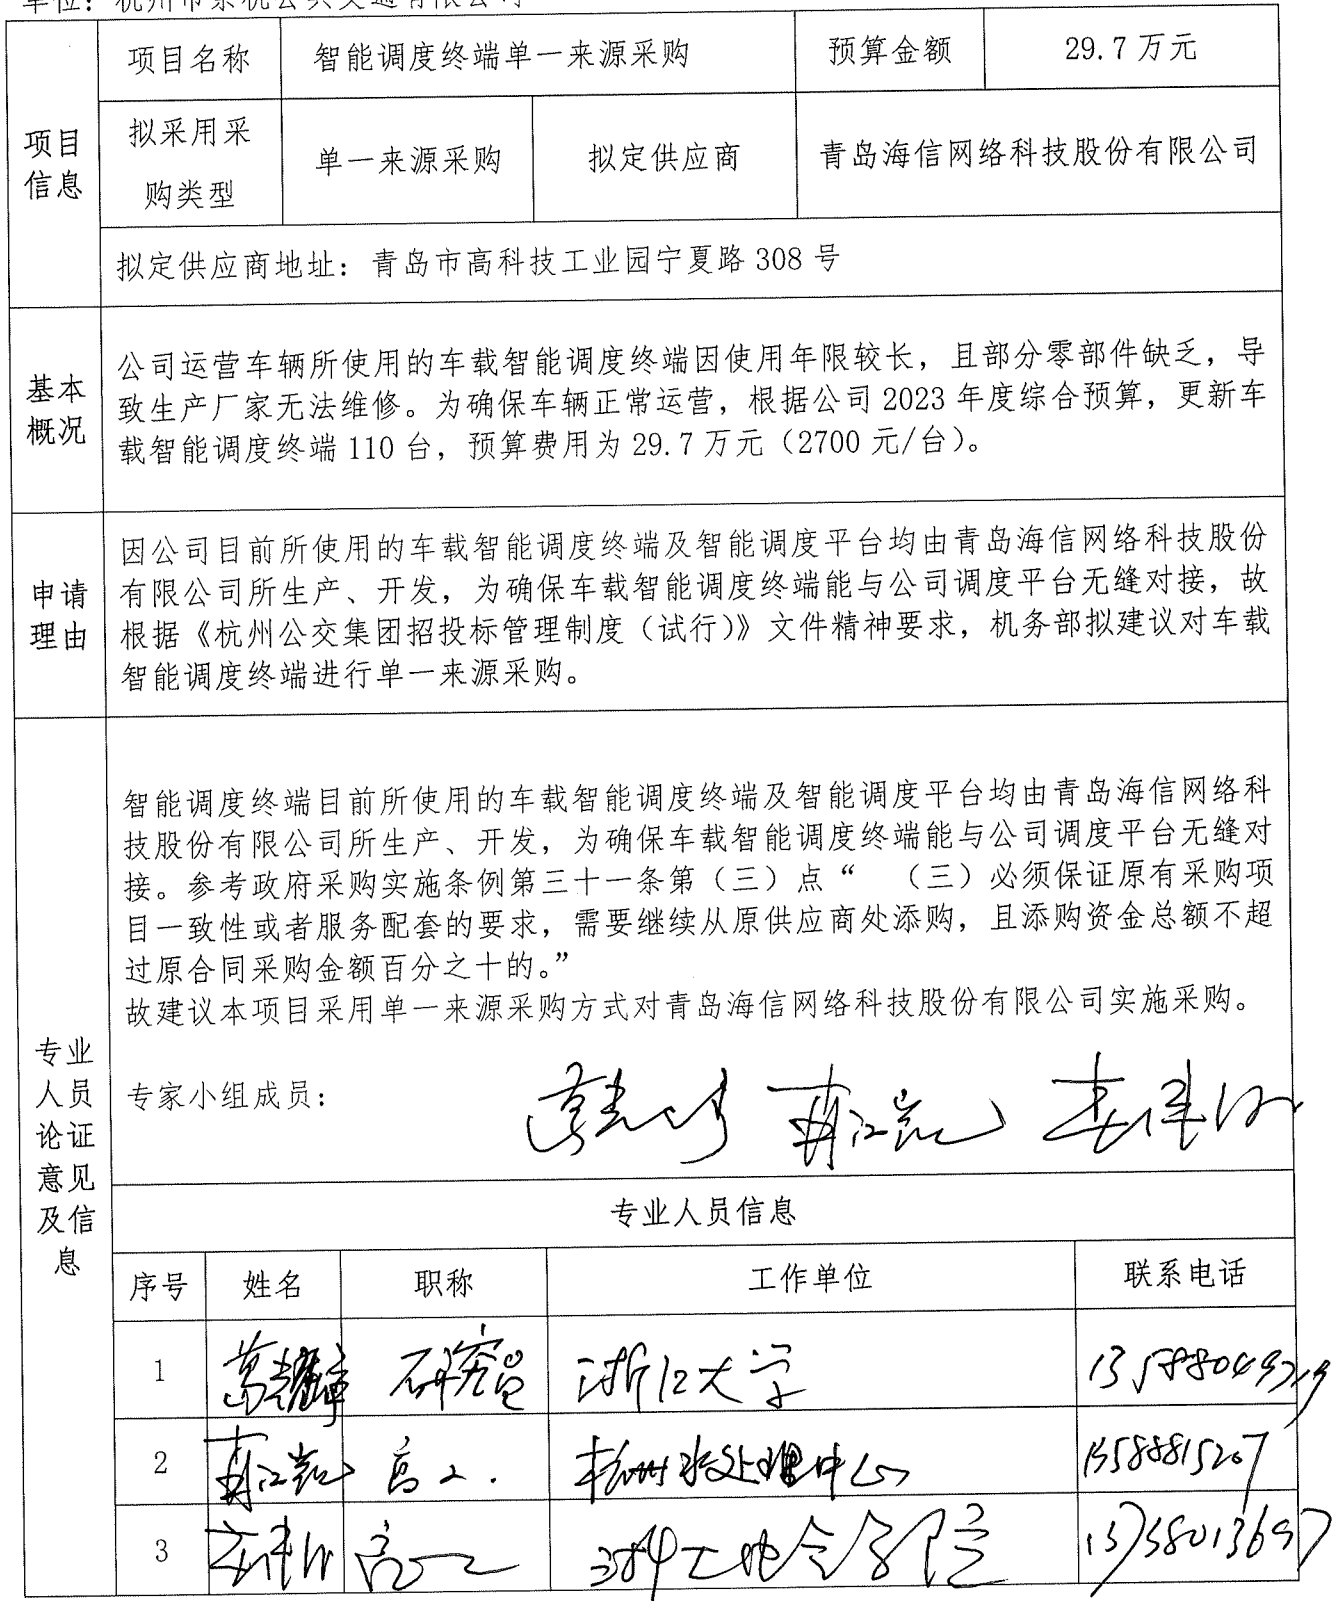 单位：杭州市余杭公共交通有限公司
项目名称 智能调度终端单一来源采购 预算金额 29.7万元
项目信息
拟采用采购类型 单一来源采购 拟定供应商 青岛海信网络科技股份有限公司
拟定供应商地址：青岛市高科技工业园宁夏路308号
基本概况
公司运营车辆所使用的车载智能调度终端因使用年限较长，且部分零部件缺乏，导
致生产厂家无法维修。为确保车辆正常运营，根据公司2023年度综合预算，更新车
载智能调度终端110台，预算费用为29.7万元（2700元/台）。
申请理由
因公司目前所使用的车载智能调度终端及智能调度平台均由青岛海信网络科技股份
有限公司所生产、开发，为确保车载智能调度终端能与公司调度平台无缝对接，故
根据《杭州公交集团招投标管理制度（试行）》文件精神要求，机务部拟建议对车载
智能调度终端进行单一来源采购。
专业人员论证意见及信息
智能调度终端目前所使用的车载智能调度终端及智能调度平台均由青岛海信网络科
技股份有限公司所生产、开发，为确保车载智能调度终端能与公司调度平台无缝对
接。参考政府采购实施条例第三十一条第（三）点“ （三）必须保证原有采购项
目一致性或者服务配套的要求，需要继续从原供应商处添购，且添购资金总额不超
过原合同采购金额百分之十的。”
故建议本项目采用单一来源采购方式对青岛海信网络科技股份有限公司实施采购。
专家小组成员：
专业人员信息
序号 姓名 职称 工作单位 联系电话
1 研究员 浙江大学
2 高工 杭州水处理中心 13588815207
3 高工